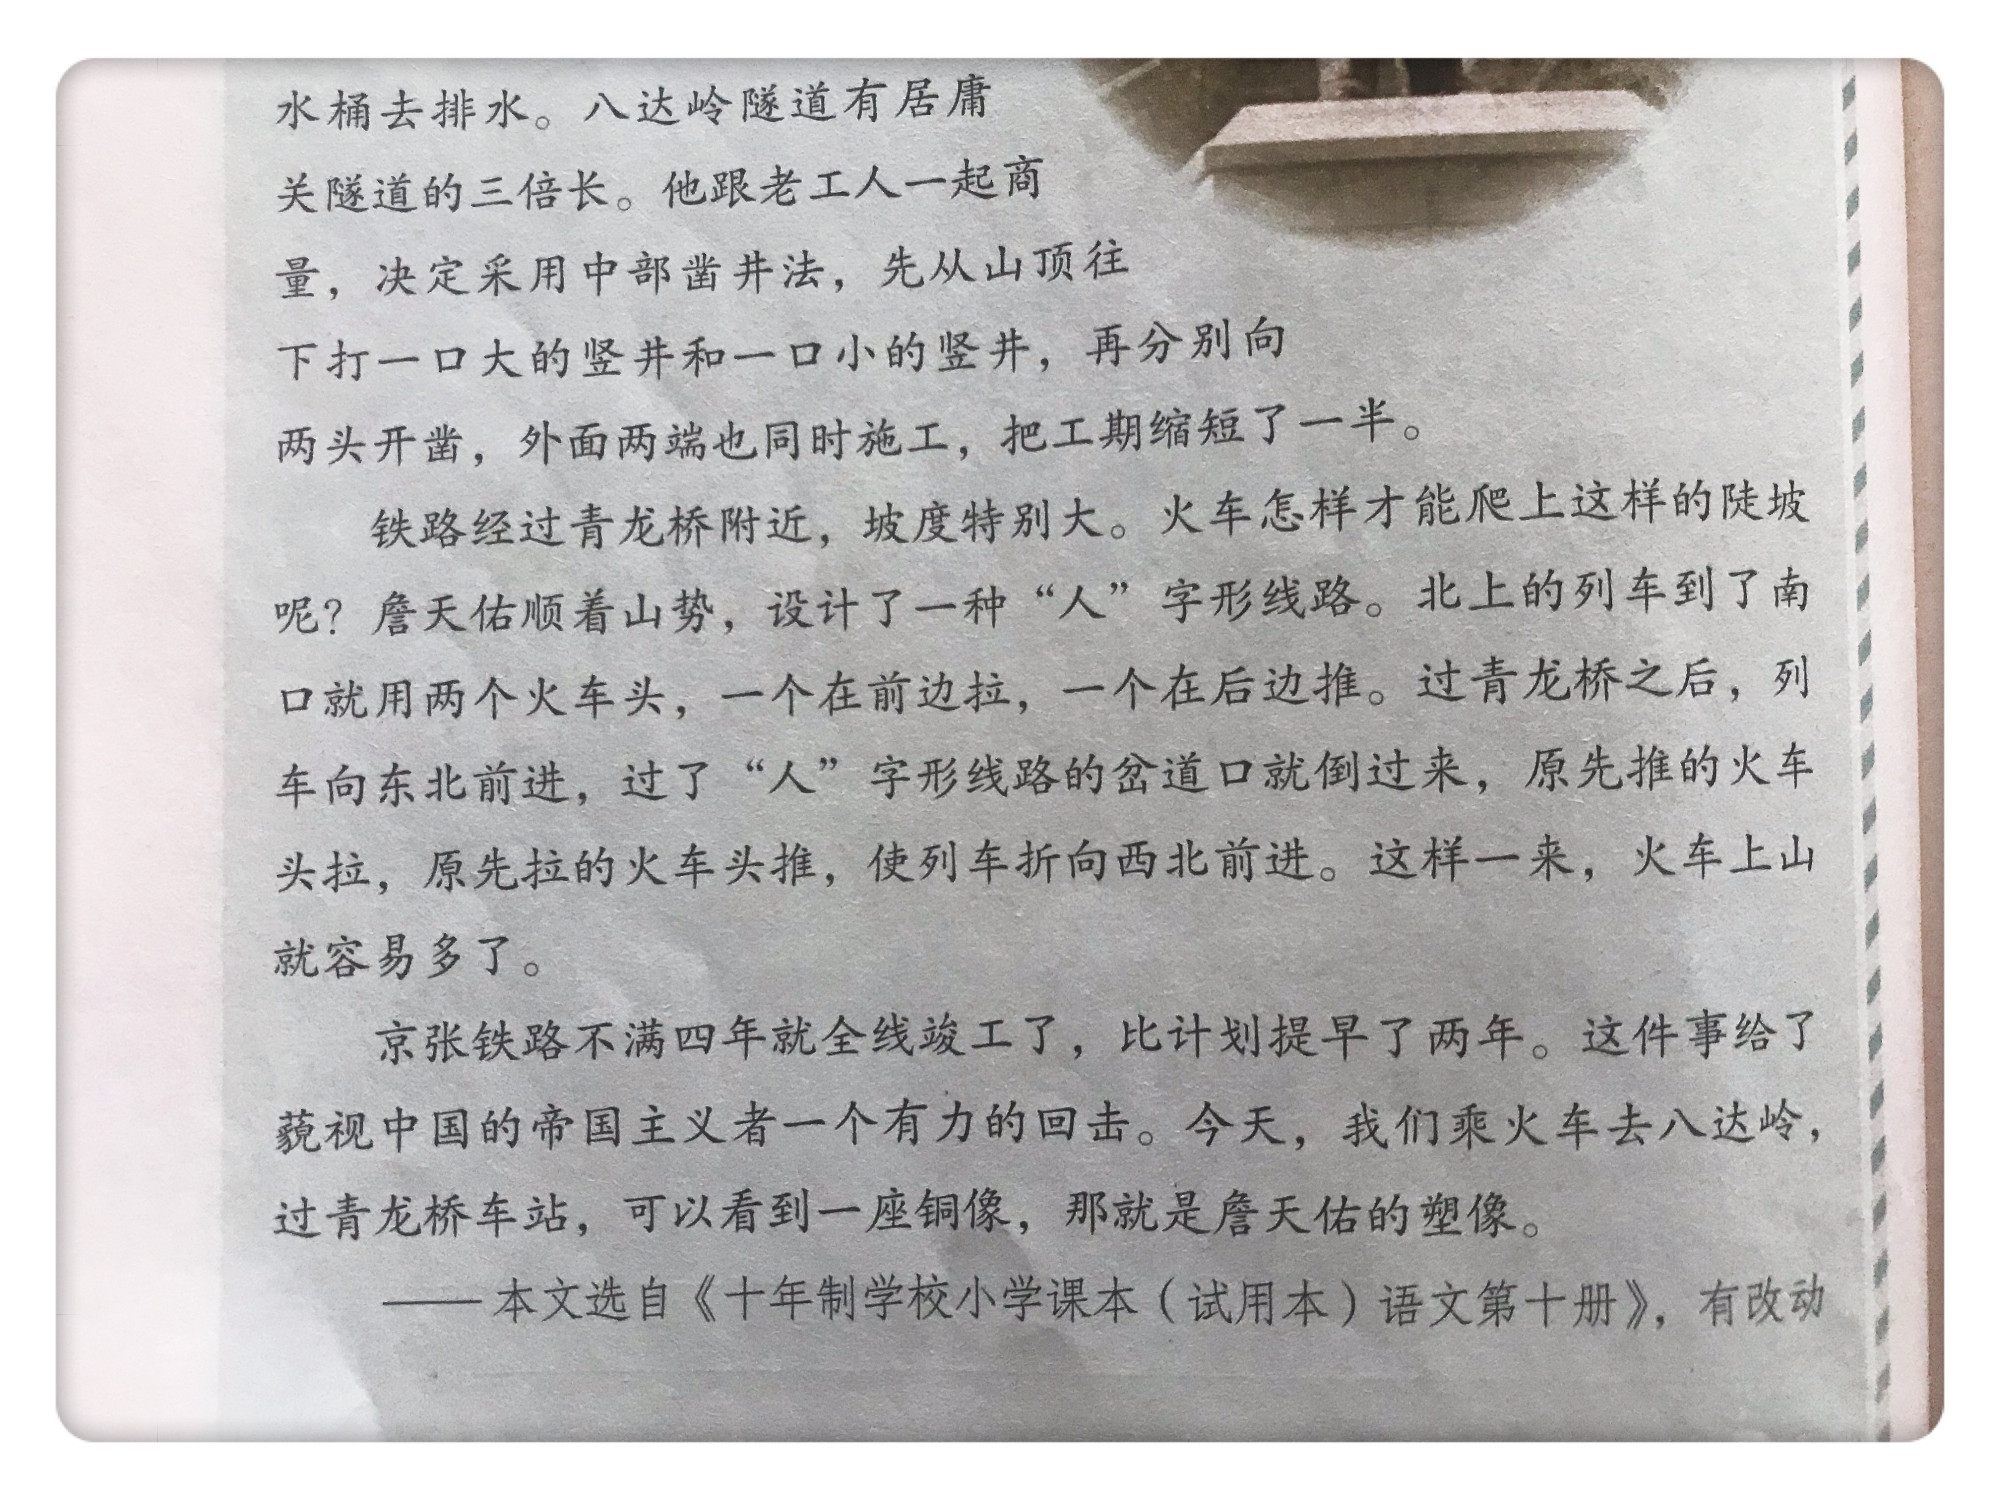 水桶去排水。八达岭隧道有居庸
关隧道的三倍长。他跟老工人一起商
量，决定采用中部凿井法，先从山顶往
下打一口大的竖井和一口小的竖井，再分别向
两头开凿，外面两端也同时施工，把工期缩短了一半。
铁路经过青龙桥附近，坡度特别大。火车怎样才能爬上这样的陡坡
呢？詹天佑顺着山势，设计了一种“人”字形线路。北上的列车到了南
口就用两个火车头，一个在前边拉，一个在后边推。过青龙桥之后，列
车向东北前进，过了“人”字形线路的岔道口就倒过来，原先推的火车
头拉，原先拉的火车头推，使列车折向西北前进。这样一来，火车上山
就容易多了。
京张铁路不满四年就全线竣工了，比计划提早了两年。这件事给了
藐视中国的帝国主义者一个有力的回击。今天，我们乘火车去八达岭，
过青龙桥车站，可以看到一座铜像，那就是詹天佑的塑像。
——本文选自《十年制学校小学课本（试用本）语文第十册》，有改动